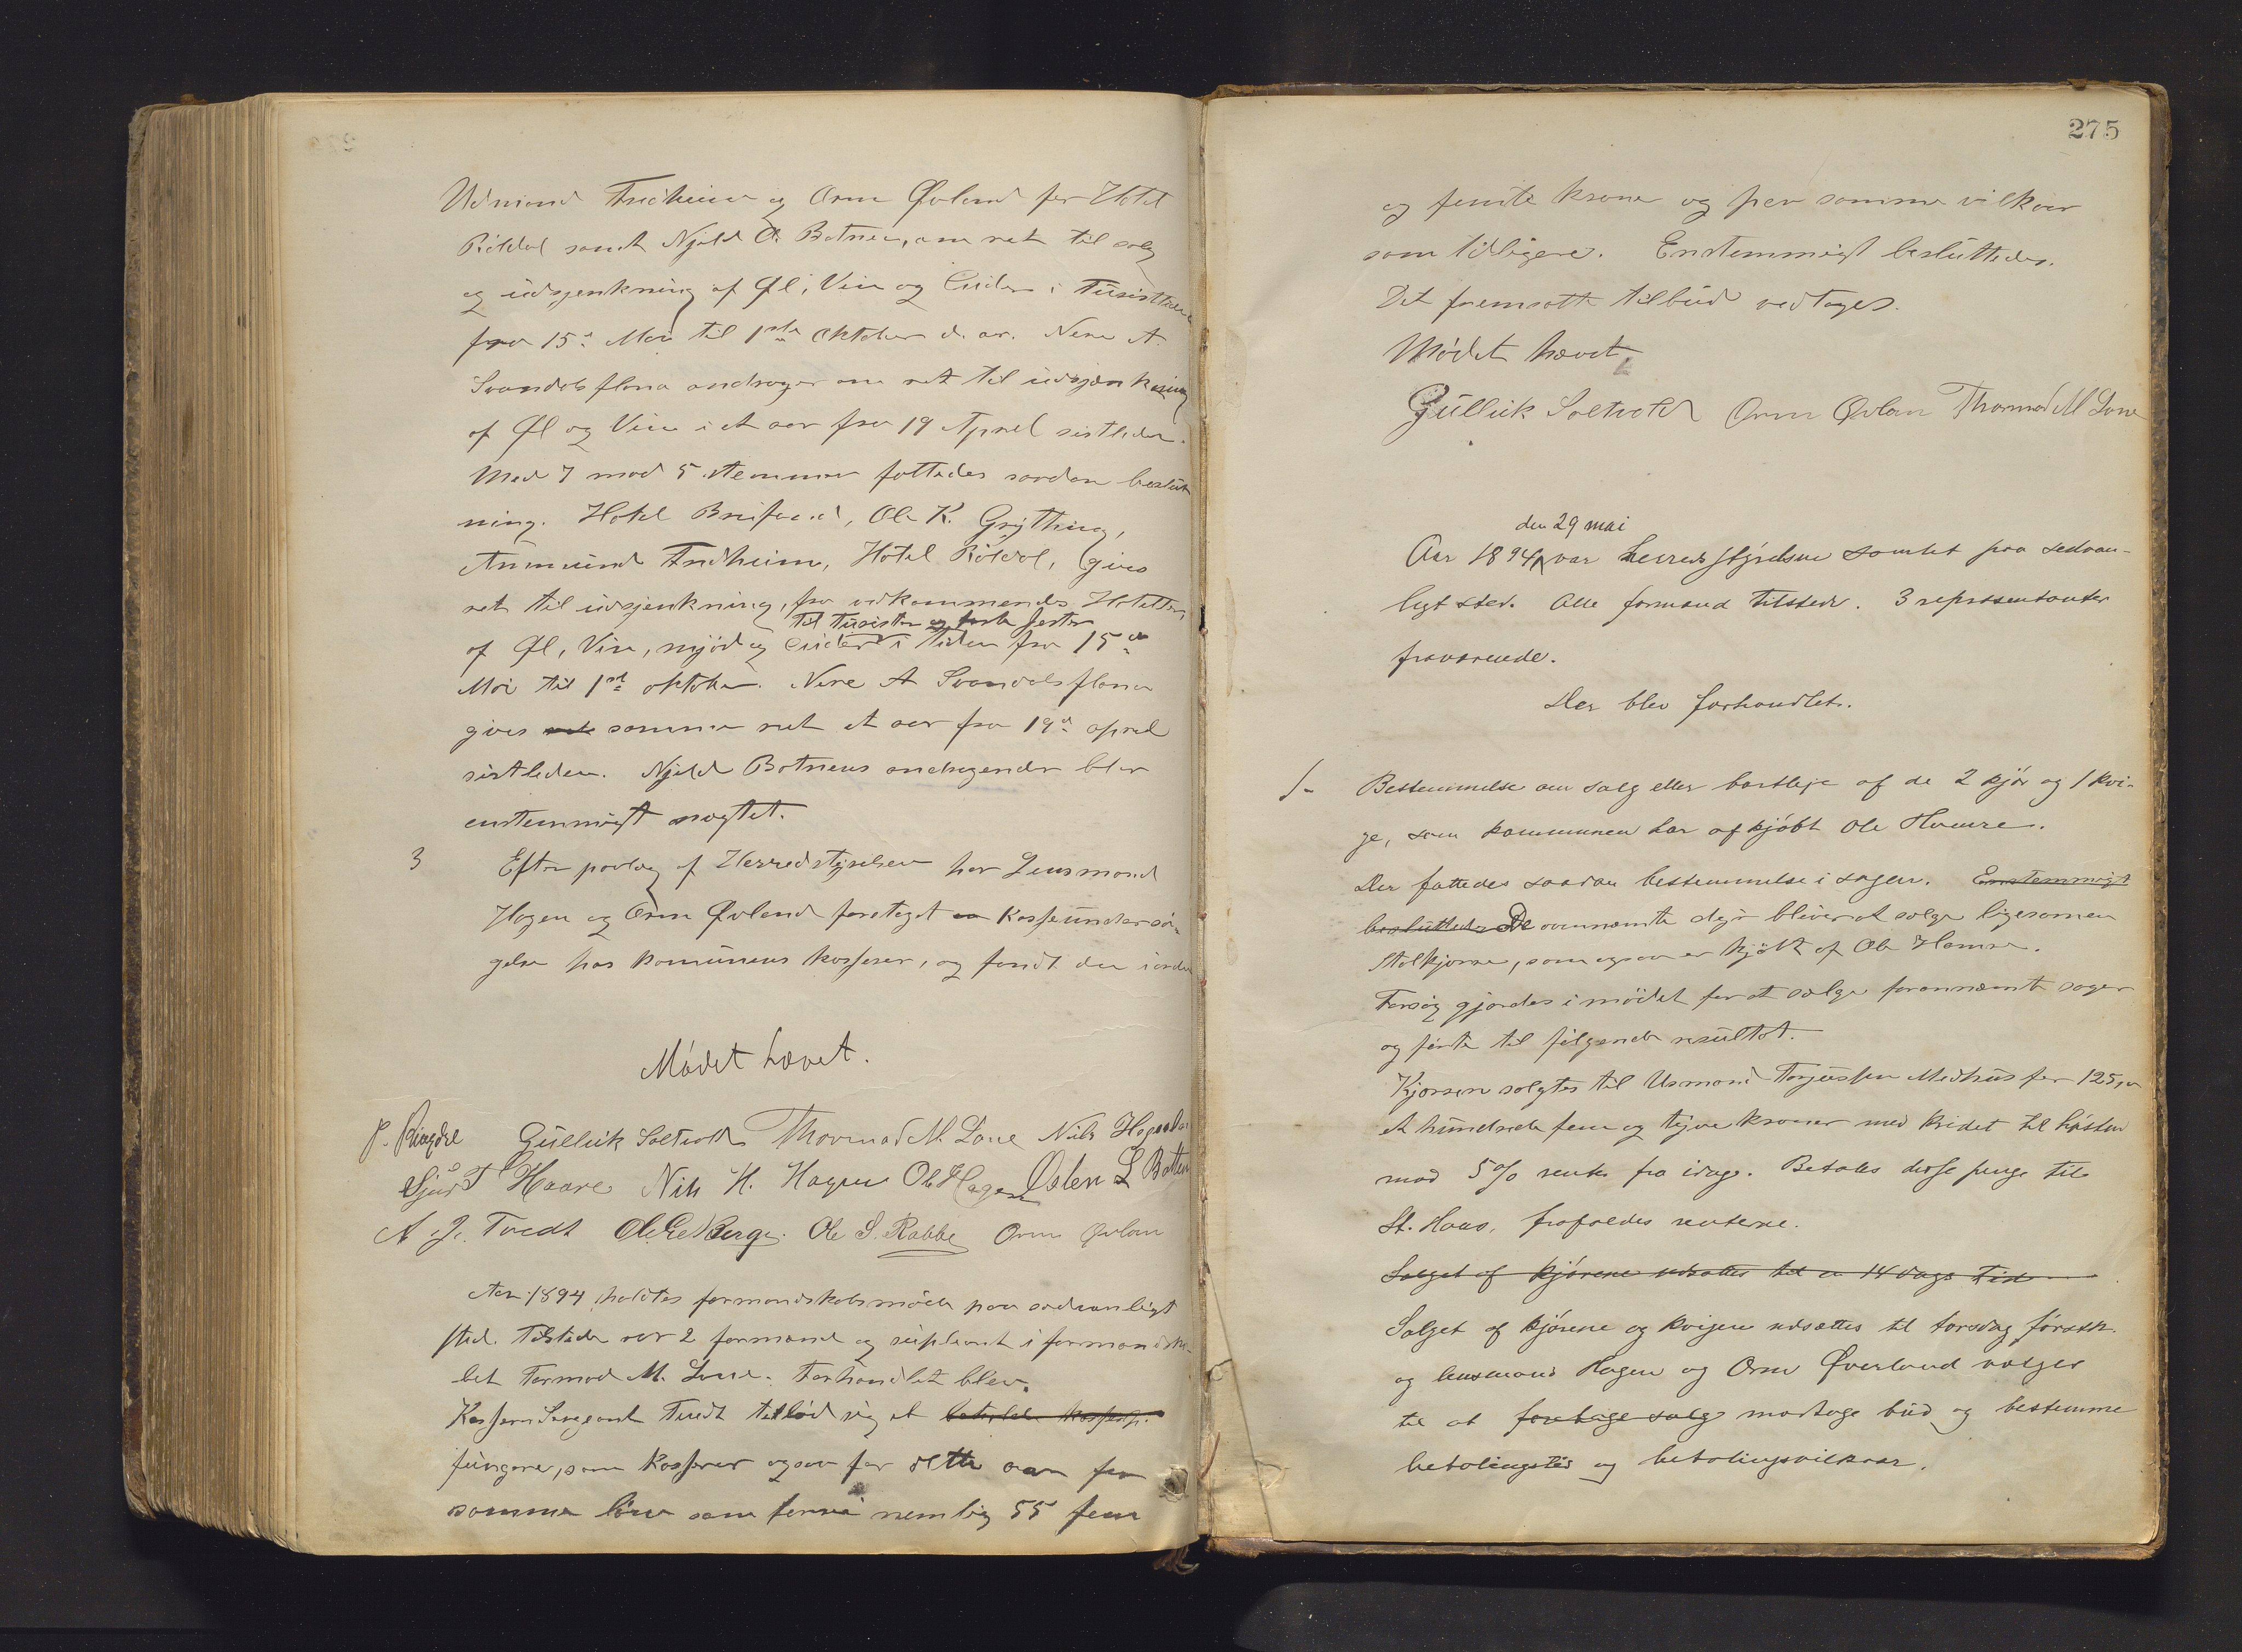 Udmond Fredheim og Orm Øvland for Hotel
Röldal samt Njeld O. Botnen, om ret til salg
og udsjenkning af Øl, Vin og Cider i Turisttiden
fra 15de Mai til 1ste Oktober d. ar. Nere A.
Svandalsflona andrager om ret til udsjænkning
af Øl og Vin i et aar fra 19 April sistleden.
Med 7 mod 5 stemmer fattedes saadan beslut
ning. Hotel Breifond, Ole K. Grytting,
Aumund Fredheim, Hotel Röldal, gives
ret til udsjenkning, fra vedkommende Hoteller,
til Turister og faste Gester
af Øl, Vin, mjød og Cider i tiden fra 15de
Mai til 1ste oktober. Nere A Svandalsflona
gives samme ret et aar fra 19de april
sistleden. Njeld Botnens andragende blev
enstemmigt nægtet.
3 Efter paalæg af Herredstyrelsen har Lensmand
Hagen og Orm Øvland foretaget Kasseundersö-
gelse hos Komunens kasserer, og fandt den i orden
Mødet hævet.
P. Ringdal Gullik Soltvedt Thormod M. Lone Nils Hogendal
Sjur T Haare Nils H. Hagen Ole Hagen Østen L Botten
A. J. Tvedt Ole E. Berge. Ole S. Rabbe Orm Øvlan
Aar 1894 holdtes formandskabsmöde paa sedvanligt
sted. Tilstede var 2 formænd og supleant i formandska-
bet Tormod M. Lone. Forhandlet blev.
Kasserer Sergeant Tvedt tilbød sig at beholde kasserer
fungere, som Kasserer ogsaa for dette aar for
samme løn som forrige nemlig 55 fem
275
og femti kroner og paa samme vilkaar
som tidligere. Enstemmigt besluttedes.
Det fremsatte tilbud vedtages.
Mödet hævet
Gullik Soltvedt Orm Øvlan Thormod M Lone
den 29 mai
Aar 1894 var herredsstyrelsen samlet paa sedvan-
ligt sted. Alle formænd tilstede. 3 repræsentanter
fraværende.
Der blev forhandlet.
1- Bestemmelse om salg eller bortleje af de 2 kjör og 1 kvi-
ge, som kommunen har afkjöbt Ole Hamre.
Der fattedes saadan bestemmelse i sagen. Enstemmigt
besluttedes De ovennæmte dyr bliver at sælge ligesom en
Stolkjærre, som ogsaa er kjöbt af Ole Hamre.
Forsög gjordes i mödet for at sælge forannæmte sager
og förte til fölgende resultat.
Kjærren solgtes til Usmond Torjussen Medhus for 125,00
et hundrede fem og tyve kroner med kridet til høsten
mod 5% rente fra idag. Betales disse penge til
St. Hans, frafaldes renterne.
Salget af kjörene udsættes til en 14 dags tid
Salget af kjörene og kvigen udsættes til torsdag förstk.
og lensmand Hagen og Orm Øverland vælges
til at foretage salg modtage bud og bestemme
betalingstid og betalingsvilkaar.